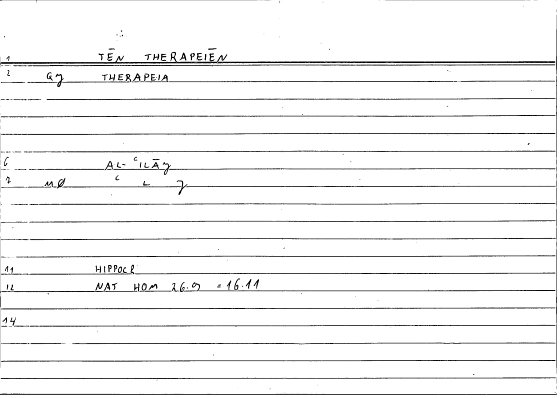 1 TĒN THERAPEIĒN
2 THERAPEIA
6 AL- ʿILĀǧ
7 MØ ʿ L ǧ
11 HIPPOCR
12 NAT HOM 26.9 = 16.11
14